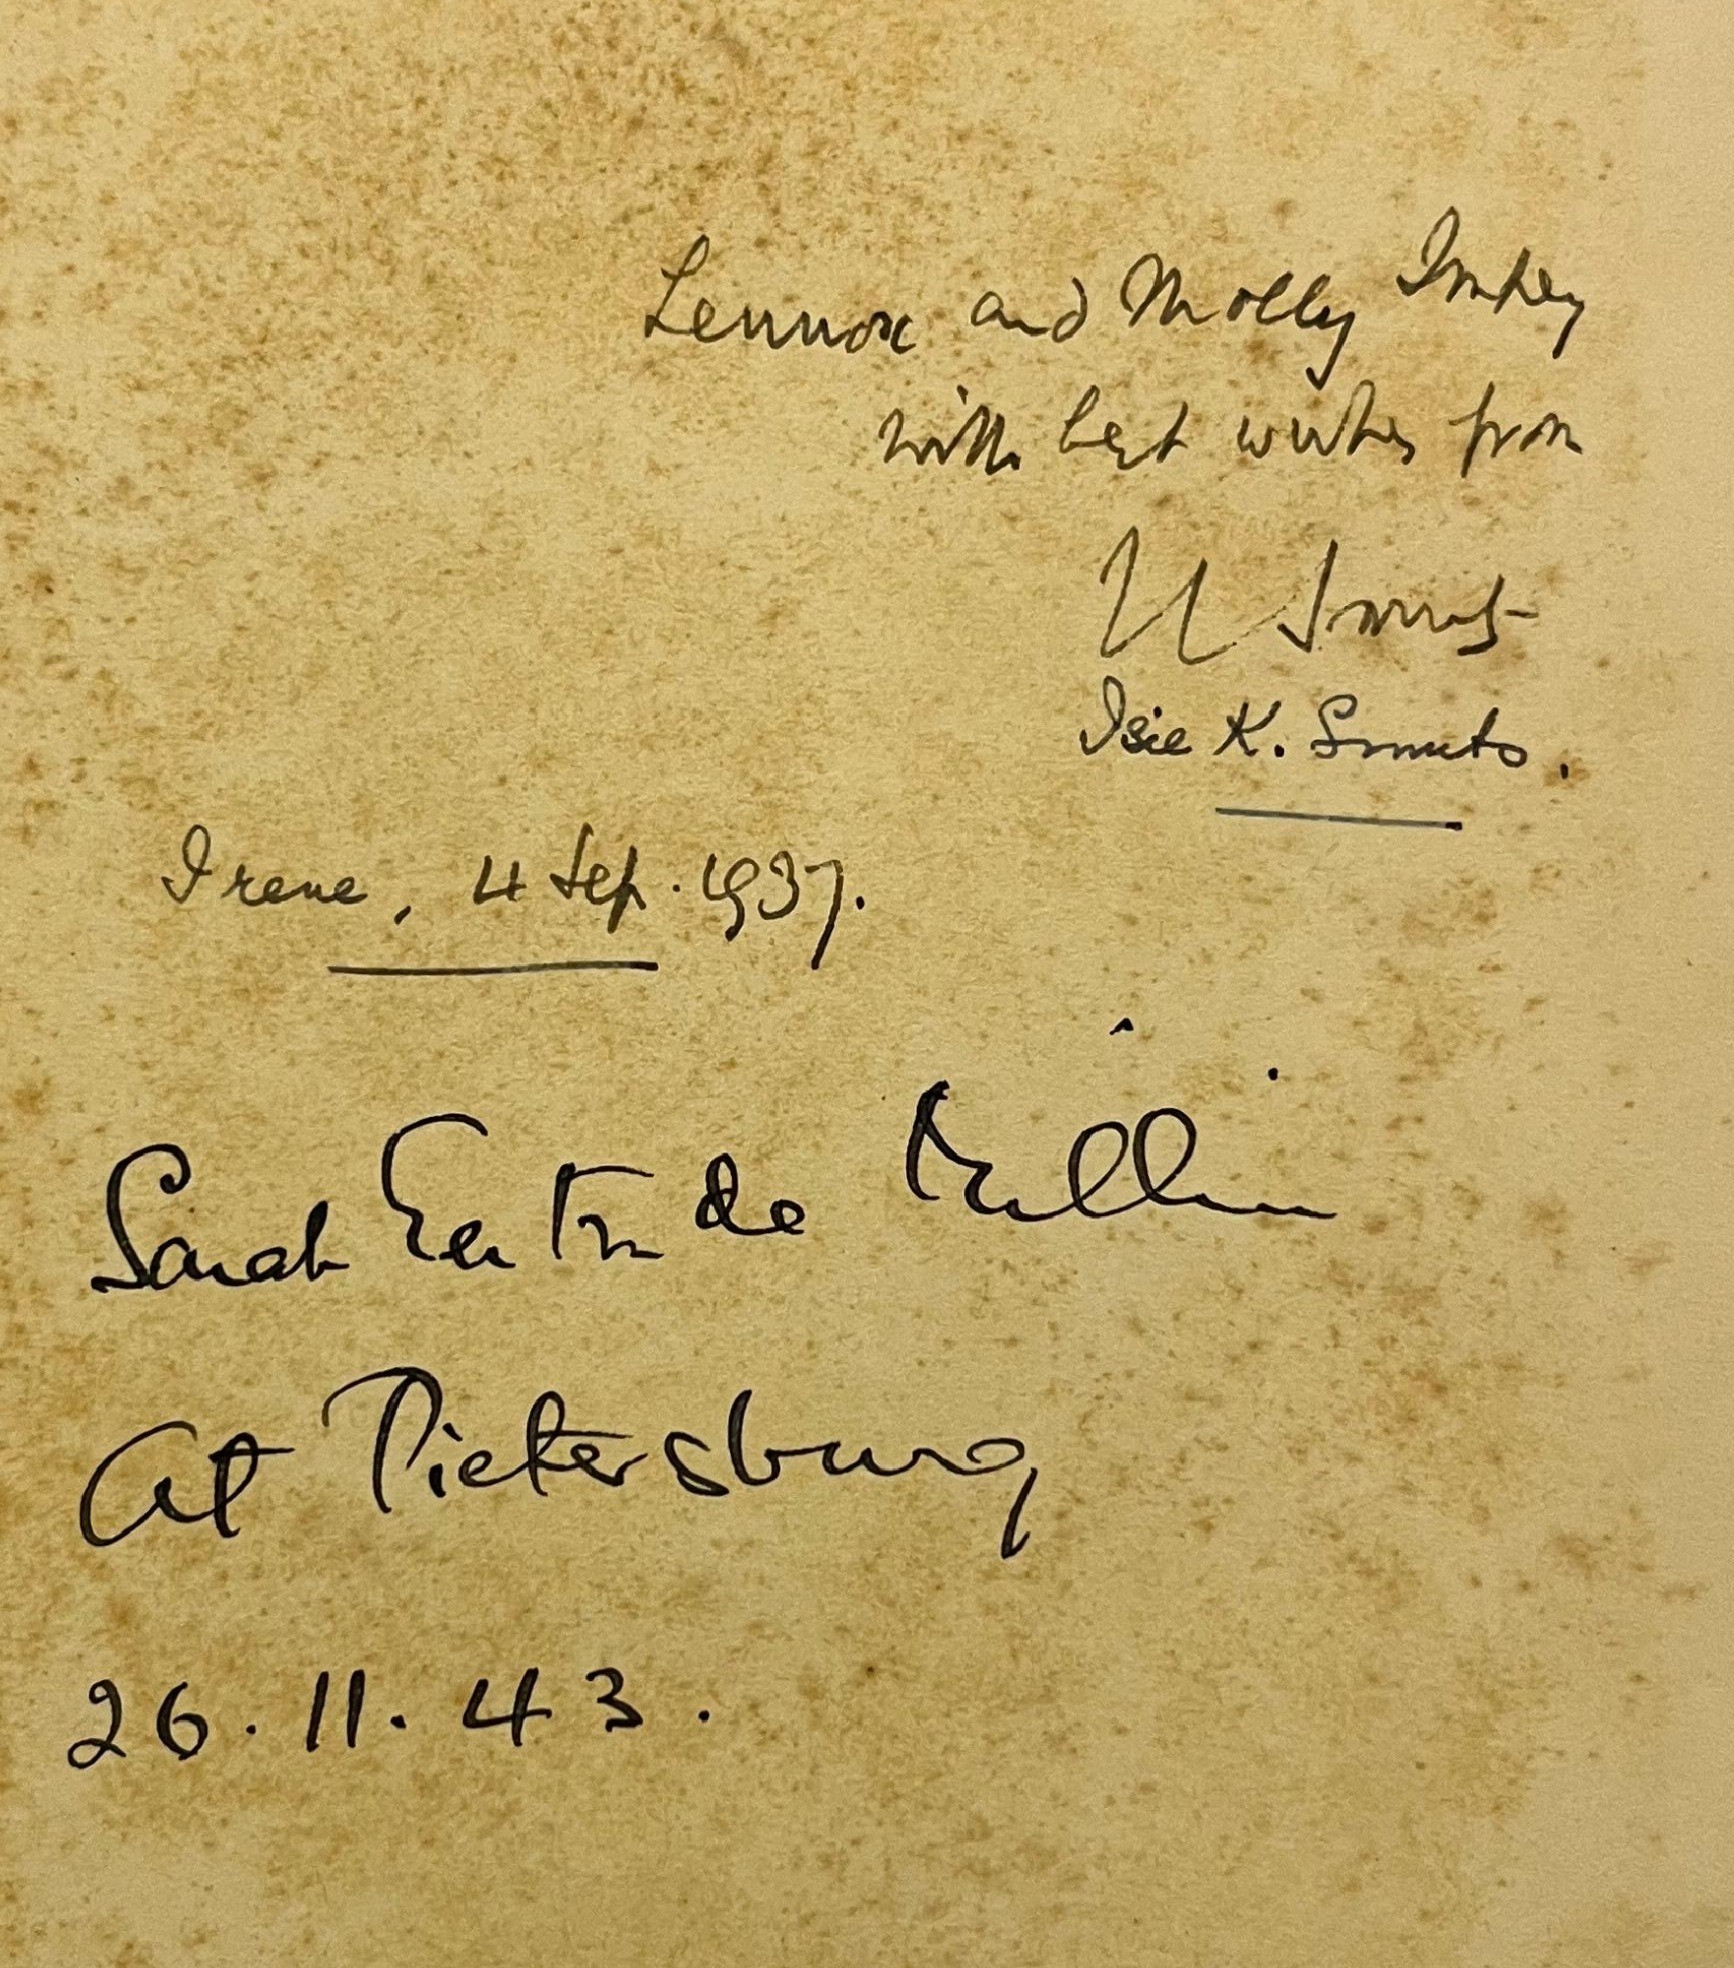 Lennox and Molly Impey
with best wishes from
JC Smuts
Isie K. Smuts.
Irene, 4 Sep. 1937.
Sarah Gertrude Millin
At Pietersburg
26.11.43.